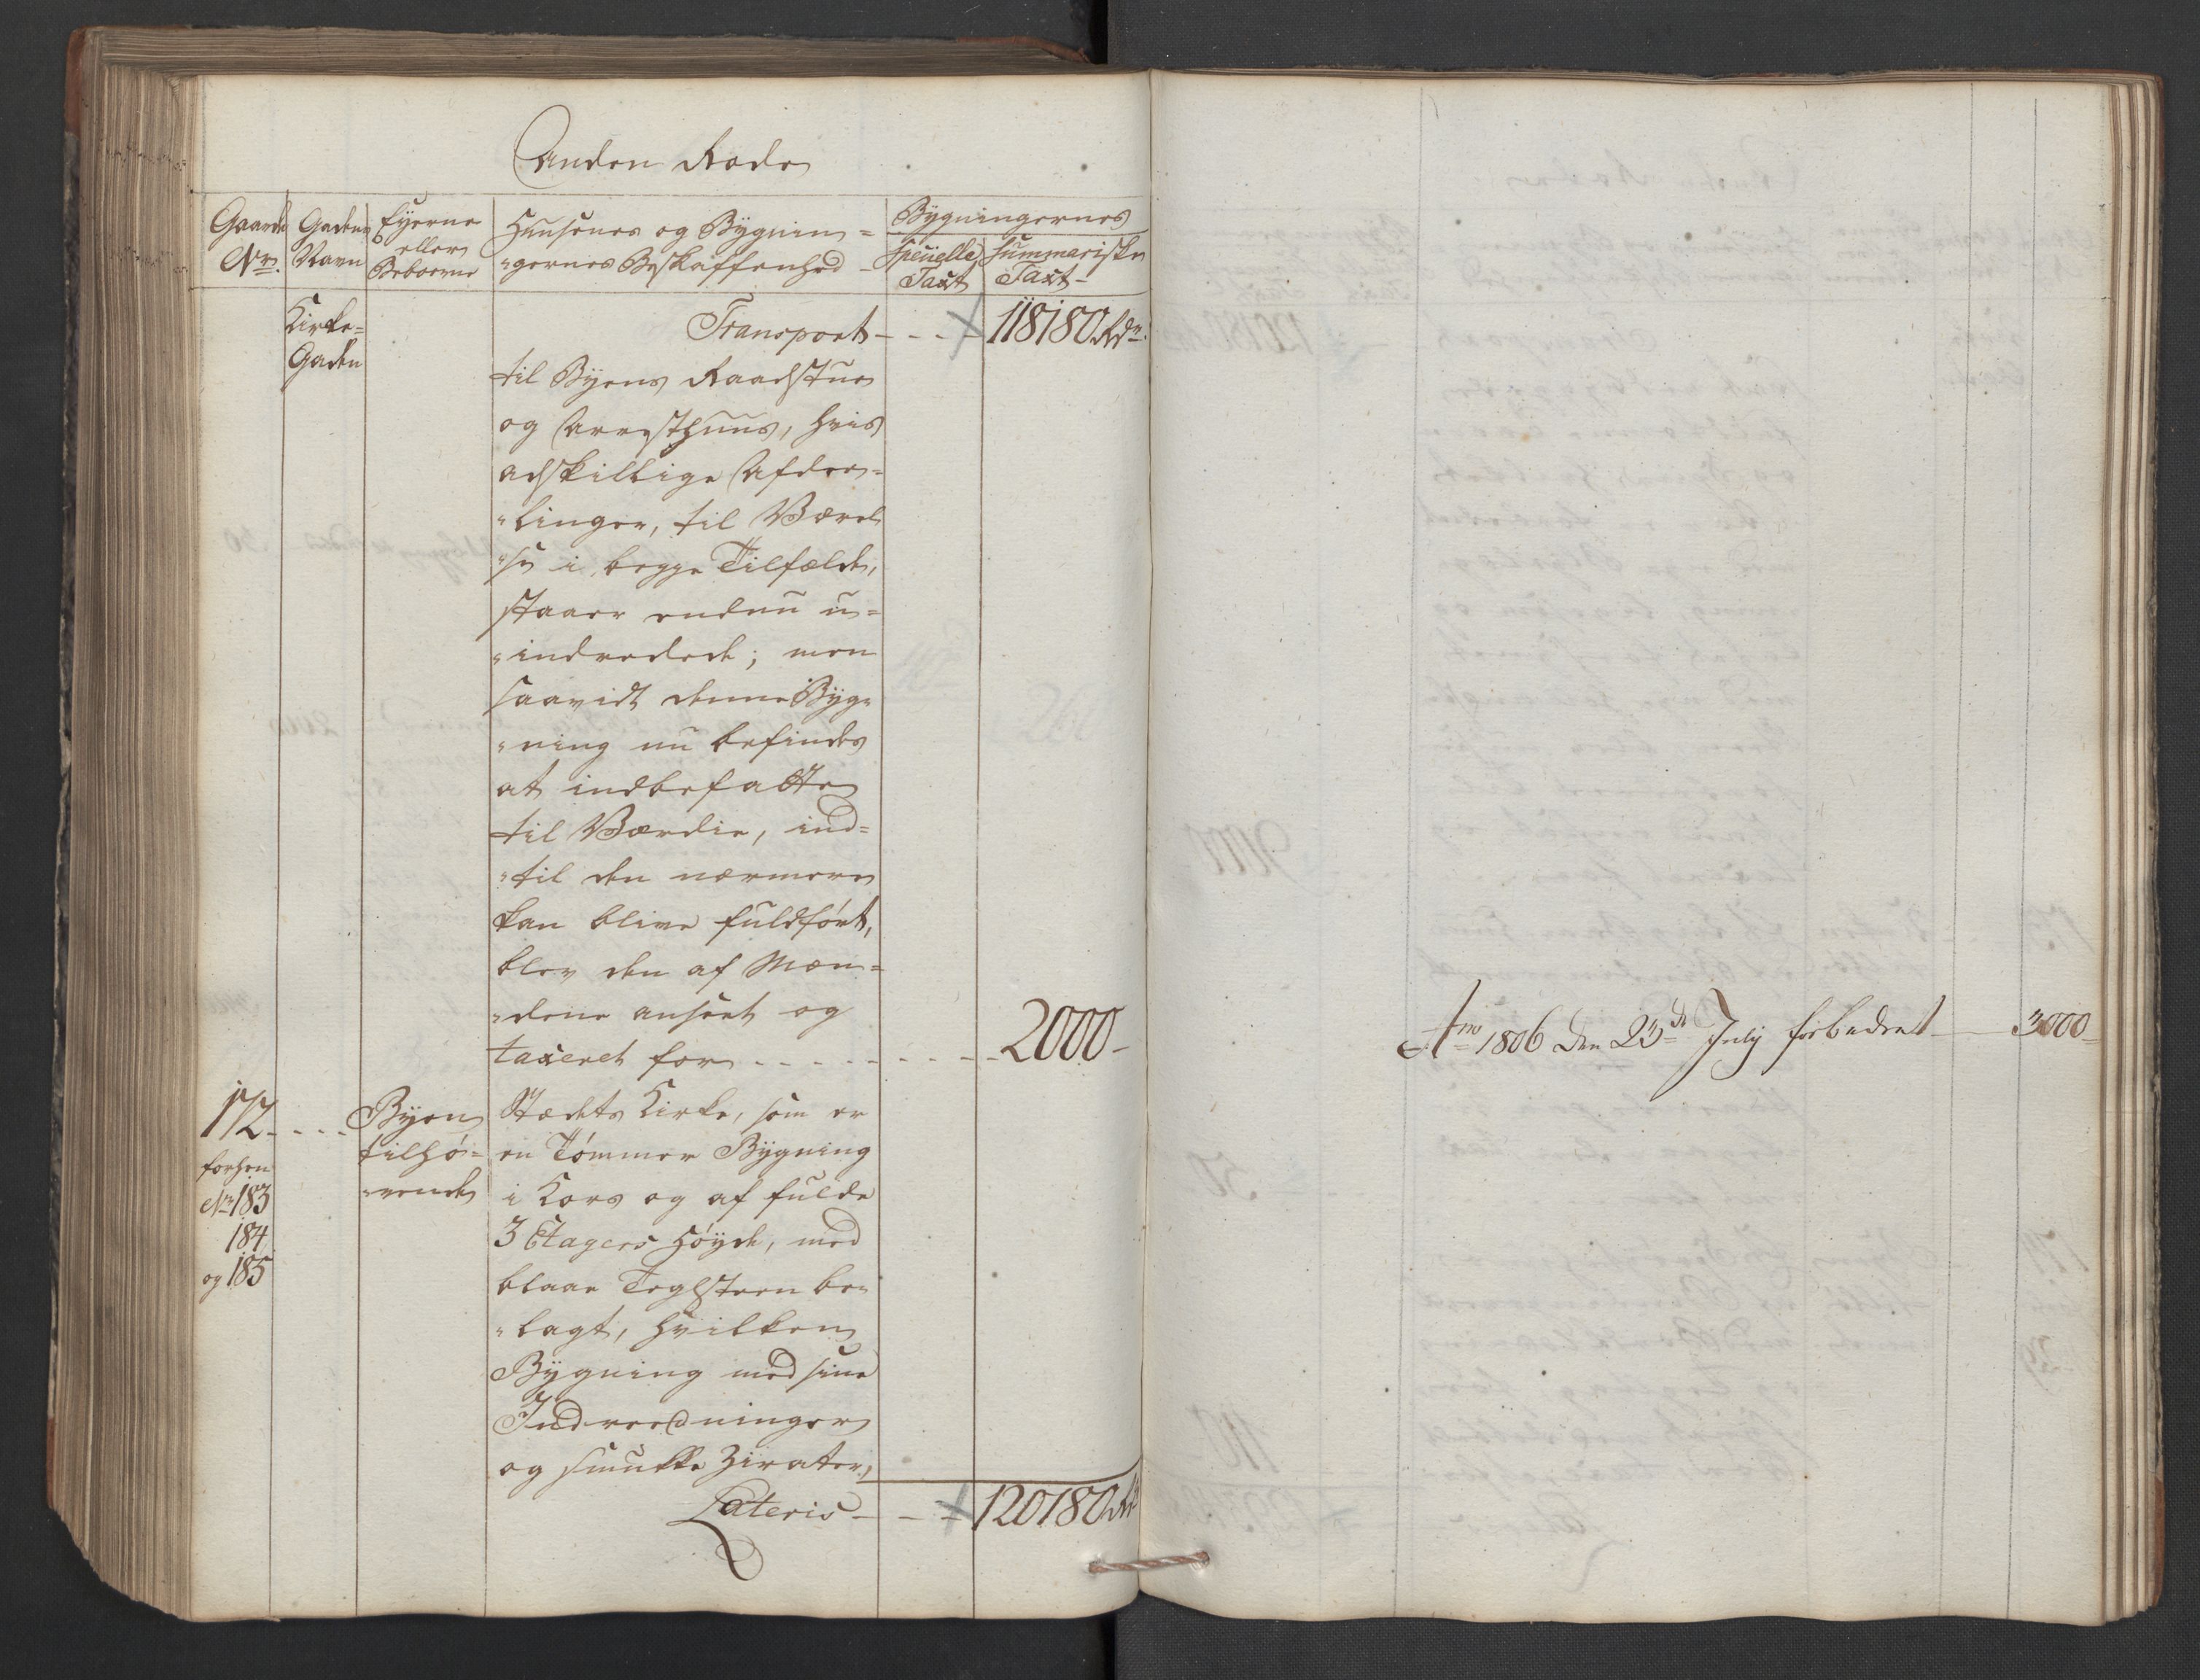 Anden Rode
Gaards No.
Gadens Navn
Eyerne eller Beboerne
Huusenes og Bygnin-
gernes Beskaffenhed
Bygningernes
specielle Taxt
summariske Taxt
Kirke-
Gaden
Transport - - - 118180 Rdr.
til Byens Raadstue
og Arresthuus, hvis
adskillige Afdee-
linger, til Værel
se i begge Tilfælde,
staaer endnu u-
indredede; men
saavidt denne Byg-
ning nu befindes
at indbefatte
til Værdie, ind-
til den nærmere
kan blive fuldført,
blev den af Mæn-
dene anseet og
taxeret for - - - - - 2000 -
172 - - - Byen
tilhø-
rende
forhen
No 183
184
og 185
Stædets Kirke, som er
en Tømmer Bygning
i Kors og af fulde
3 Etagers Høyde, med
blaae Teglsteen be-
lagt, hvilken
Bygning med sine
Indreedninger
og smukke Zirater,
Lateris - - - 120180 Rdr
Ano 1806 den 23de July forbedret - 3000 -